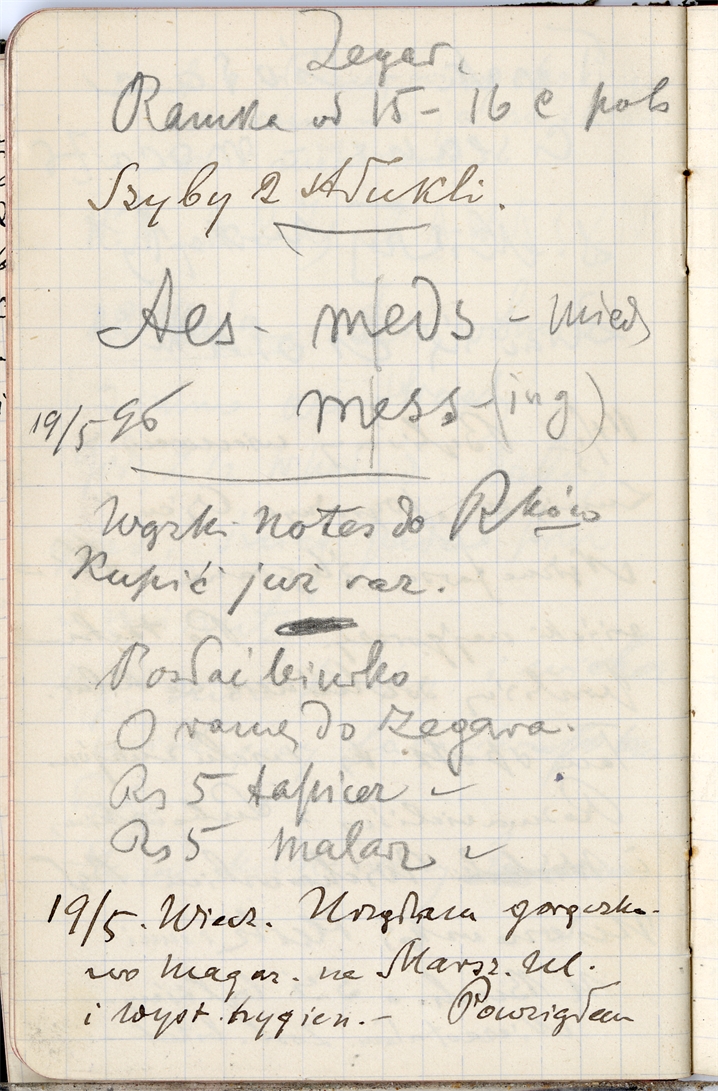 Zegar.
Ramka od 15 – 16 c
Szyby 2 stłukli.
Aes – m|eds – miedź
19/5 96 m|ess-(ing)
Wązki notes do
Kupić już raz.
Posłać biurko
O ramę do zegara.
Rs 5 tapicer
Rs 5 malarz
19/5. Wiecz. Urządzam gorączko-
wo magaz. na Marsz. Ul.
i wyst. hygien. – Powziąłem